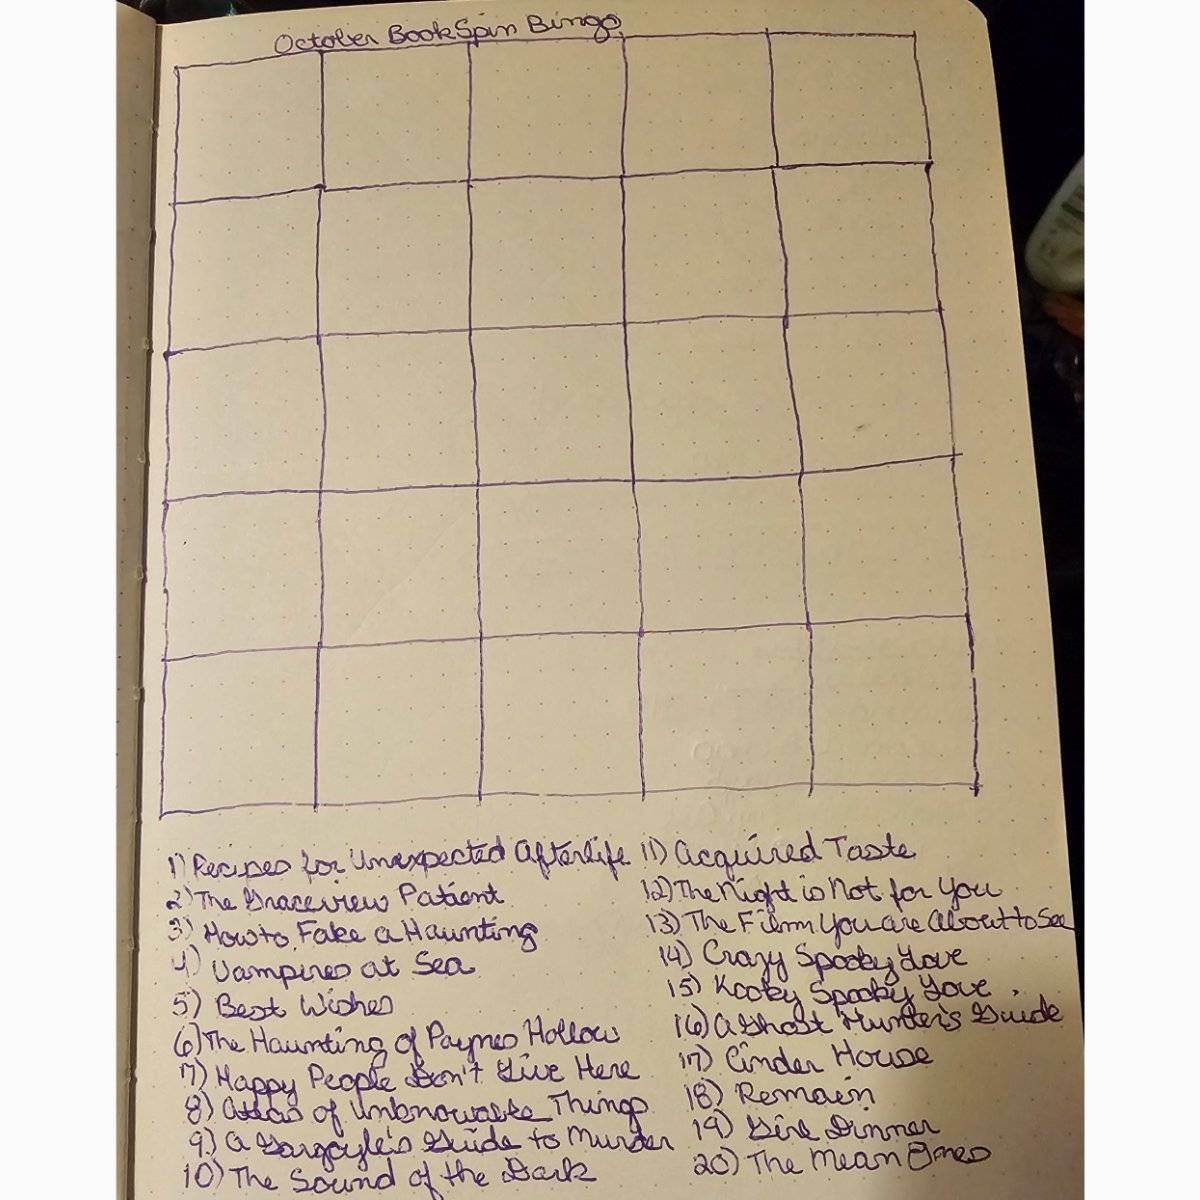 October BookSpin Bingo
1) Recipes for Unexpected Afterlife
2) The Graceview Patient
3) How to Fake a Haunting
4) Vampires at Sea
5) Best Wishes
6) The Haunting of Paynes Hollow
7) Happy People Don't Live Here
8) Atlas of Unknowable Things
9) A Gargoyle's Guide to Murder
10) The Sound of the Dark
11) Acquired Taste
12) The Night is Not for You
13) The Film You are About to See
14) Crazy Spooky Love
15) Kooky Spooky Love
16) A Ghost Hunter's Guide
17) Cinder House
18) Remain
19) Girl Dinner
20) The Mean Ones